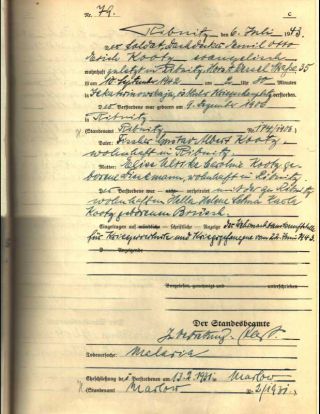 Nr. 79. C
Ribnitz, den 6. Juli 1943.
Der Soldat, Dachdecker Emil Otto
Erich Kooty evangelisch
wohnhaft zuletzt in Ribnitz, Horst Wessel Straße 35
ist am 10. September 1942 um 2 Uhr 30 Minuten
in verstorben.
Der Verstorbene war geboren am 9. Dezember 1906
in Ribnitz
(Standesamt Ribnitz Nr. 174/1906)
Vater: Fischer Gustav Albert Kooty
wohnhaft in Ribnitz
Mutter: Elise Caroline Kooty ge-
borene wohnhaft in Ribnitz
D Verstorbene war – nicht – verheiratet mit der in Ribnitz
wohnhaften Helene
Kooty geborenen
Eingetragen auf mündliche – schriftliche – Anzeige der Wehrmachtauskunftstelle
für Kriegerverluste und Kriegsgefangene vom 22. Juni 1943.
D Anzeigende
Vorgelesen, genehmigt und unterschrieben
Der Standesbeamte
In Vertretung:
Todesursache: Malaria
Eheschließung des Verstorbenen am 13.2.1931 in Marlow
(Standesamt Marlow Nr. 2/1931)